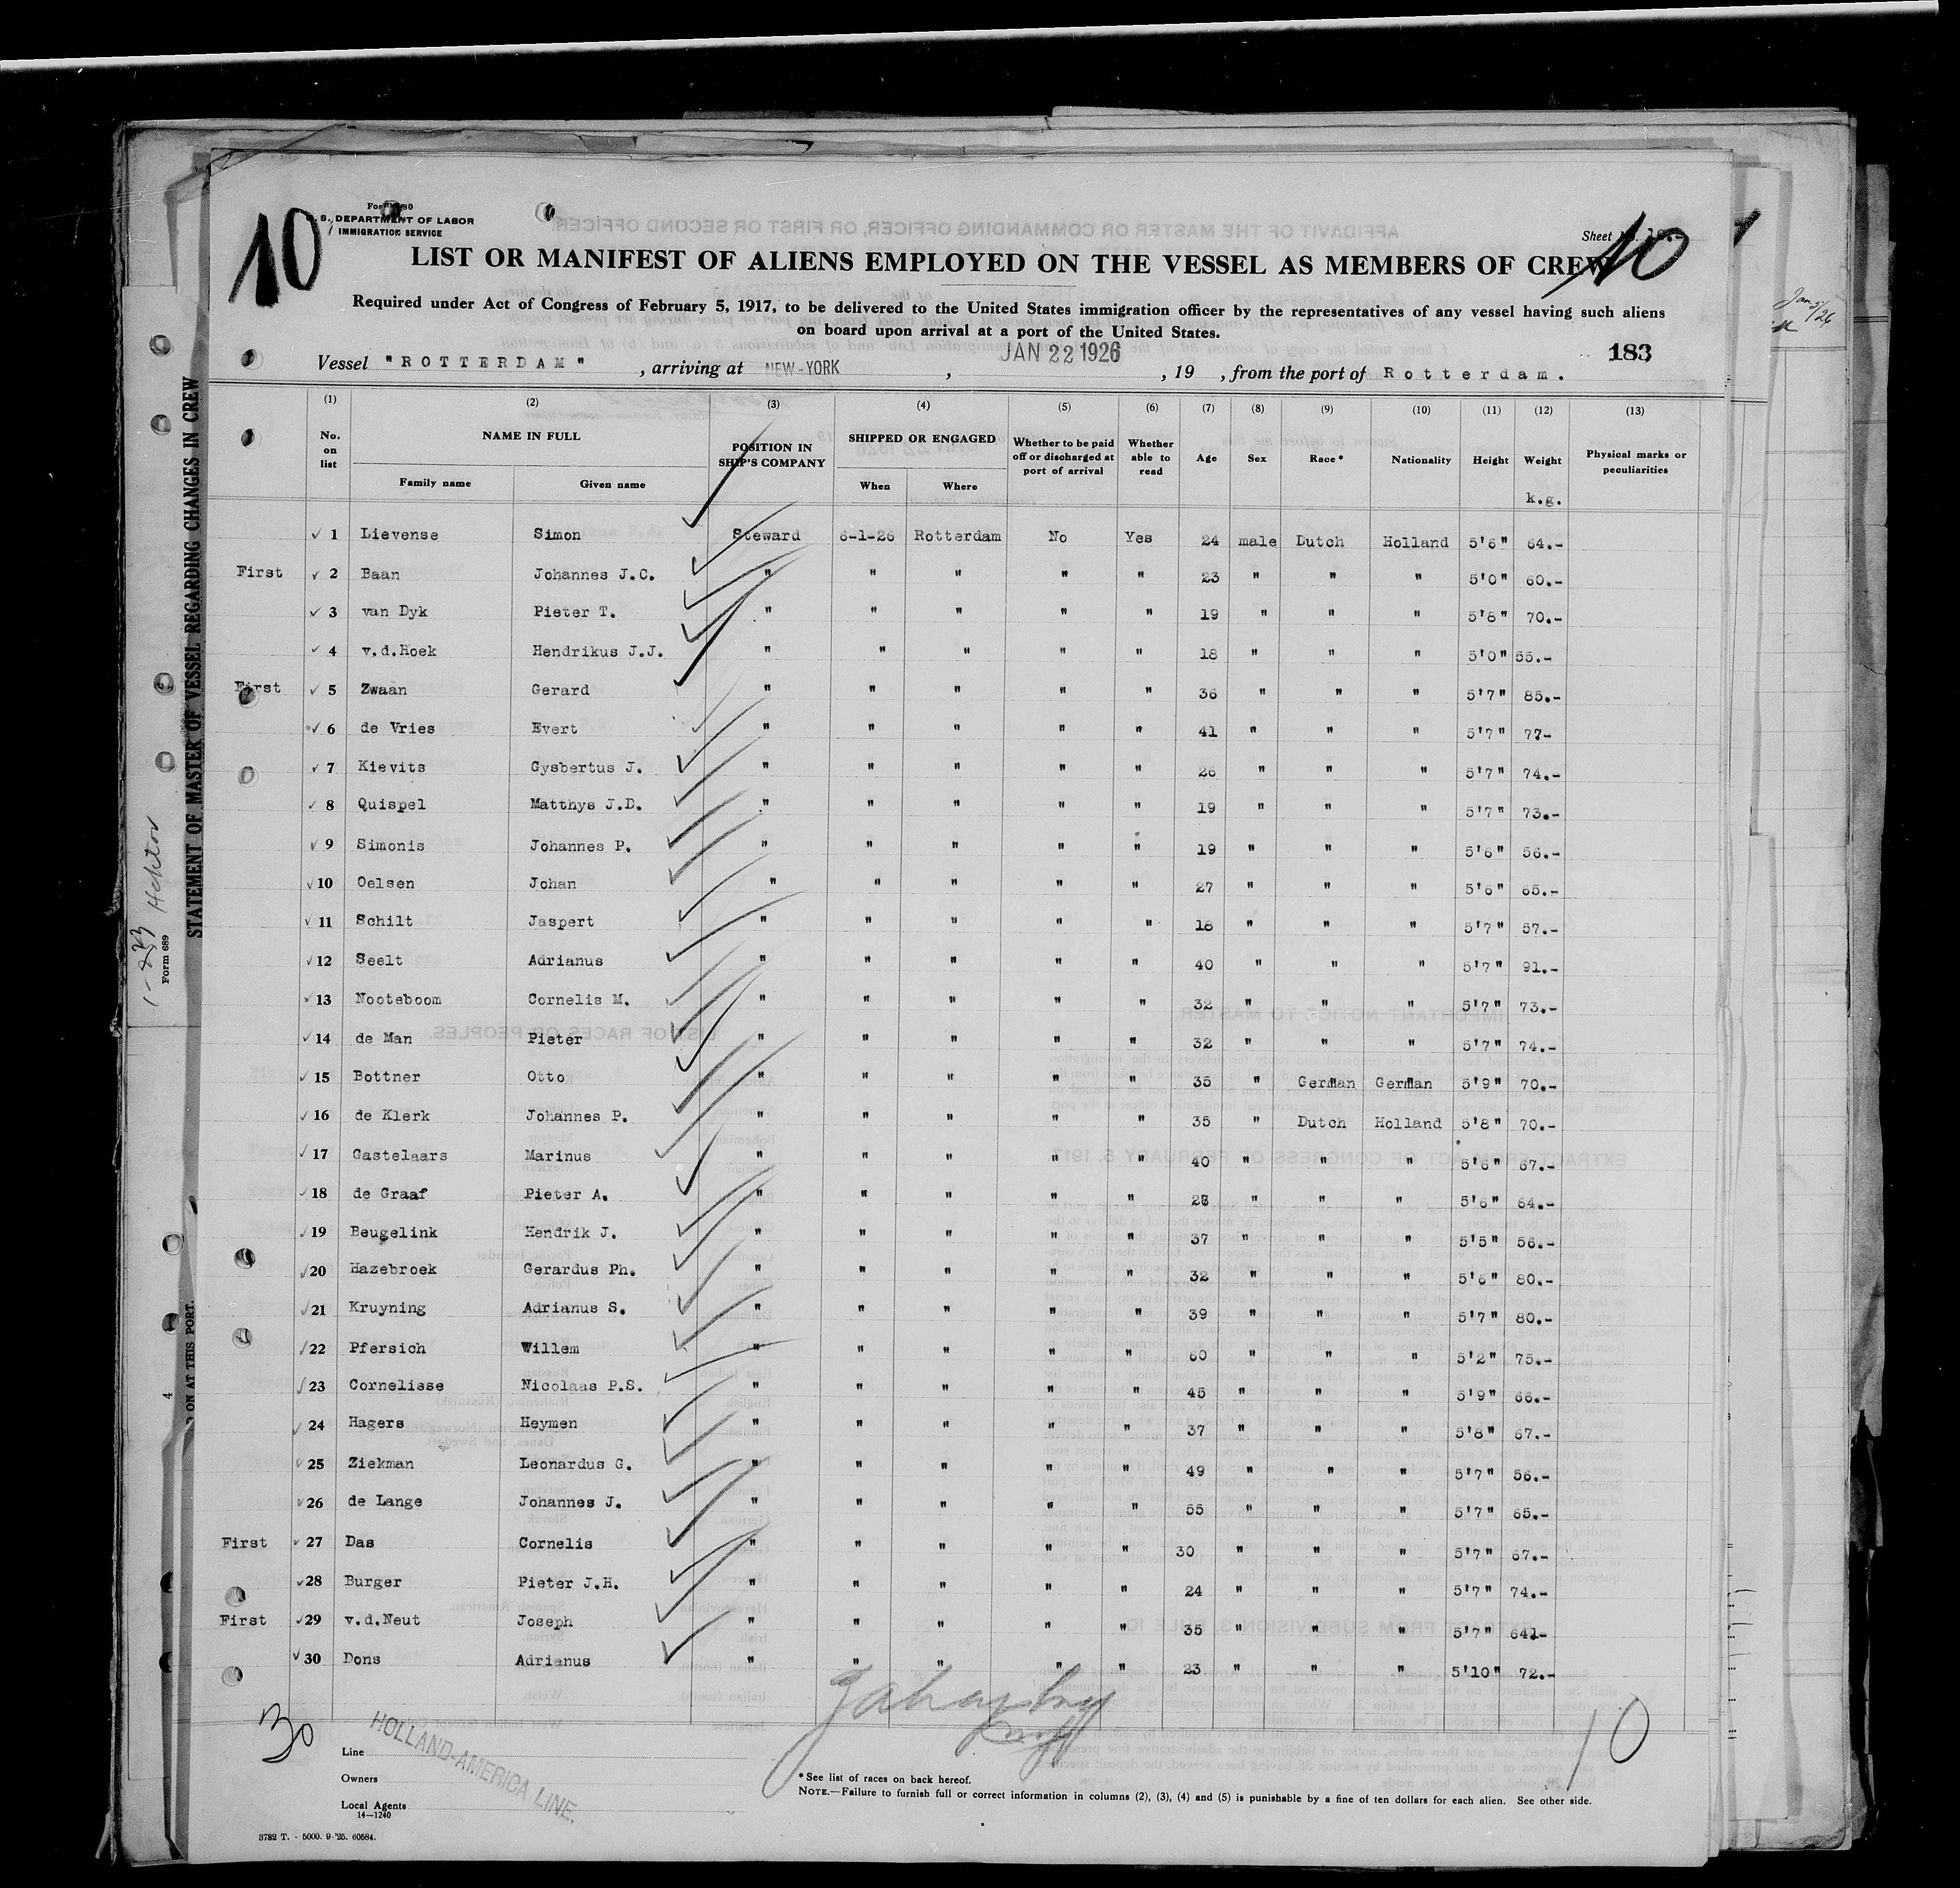 10
Form 680
U. S. DEPARTMENT OF LABOR
IMMIGRATION SERVICE
Sheet No. 10.-
10
LIST OR MANIFEST OF ALIENS EMPLOYED ON THE VESSEL AS MEMBERS OF CREW
Required under Act of Congress of February 5, 1917, to be delivered to the United States immigration officer by the representatives of any vessel having such aliens
on board upon arrival at a port of the United States.
183
Vessel "ROTTERDAM", arriving at NEW-YORK, JAN 22 1926, 19 , from the port of Rotterdam.
(1) (2) (3) (4) (5) (6) (7) (8) (9) (10) (11) (12) (13)
No. on list NAME IN FULL POSITION IN SHIP'S COMPANY SHIPPED OR ENGAGED Whether to be paid off or discharged at port of arrival Whether able to read Age Sex Race* Nationality Height Weight Physical marks or peculiarities
Family name Given name When Where k.g.
1 Lievense Simon Steward 6-1-26 Rotterdam No Yes 24 male Dutch Holland 5'6" 64.-
First 2 Baan Johannes J.C. " " " " " 23 " " " 5'0" 60.-
3 van Dyk Pieter T. " " " " " 19 " " " 5'8" 70.-
4 v.d.Hoek Hendrikus J.J. " " " " " 18 " " " 5'0" 55.-
First 5 Zwaan Gerard " " " " " 36 " " " 5'7" 85.-
6 de Vries Evert " " " " " 41 " " " 5'7" 77-
7 Kievits Gysbertus J. " " " " " 26 " " " 5'7" 74.-
8 Quispel Matthys J.D. " " " " " 19 " " " 5'7" 73.-
9 Simonis Johannes P. " " " " " 19 " " " 5'6" 56.-
10 Oelsen Johan " " " " " 27 " " " 5'6" 65.-
11 Schilt Jaspert " " " " " 18 " " " 5'7" 57.-
12 Seelt Adrianus " " " " " 40 " " " 5'7" 91.-
13 Nooteboom Cornelis M. " " " " " 32 " " " 5'7" 73.-
14 de Man Pieter " " " " " 32 " " " 5'7" 74.-
15 Bottner Otto " " " " " 35 " German German 5'9" 70.-
16 de Klerk Johannes P. " " " " " 35 " Dutch Holland 5'8" 70.-
17 Gastelaars Marinus " " " " " 40 " " " 5'6" 67.-
18 de Graaf Pieter A. " " " " " " " " 5'6" 64.-
19 Beugelink Hendrik J. " " " " " 37 " " " 5'5" 56.-
20 Hazebroek Gerardus Ph. " " " " " 32 " " " 5'6" 80.-
21 Kruyning Adrianus S. " " " " " 39 " " " 5'7" 80.-
22 Pfersich Willem " " " " " 60 " " " 5'2" 75.-
23 Cornelisse Nicolaas P.S. " " " " " 45 " " " 5'9" 66.-
24 Hagers Heymen " " " " " 37 " " " 5'8" 67.-
25 Ziekman Leonardus G. " " " " " 49 " " " 5'7" 56.-
26 de Lange Johannes J. " " " " " 55 " " " 5'7" 65.-
First 27 Das Cornelis " " " " " 30 " " " 5'7" 67.-
28 Burger Pieter J.H. " " " " " 24 " " " 5'7" 74.-
First 29 v.d.Neut Joseph " " " " " 35 " " " 5'7" 641-
30 Dons Adrianus " " " " " 23 " " " 5'10" 72.-
30
10
Line
HOLLAND-AMERICA LINE.
Owners
Local Agents
14—1240
*See list of races on back hereof.
NOTE.—Failure to furnish full or correct information in columns (2), (3), (4) and (5) is punishable by a fine of ten dollars for each alien. See other side.
3782 T. - 5000. 9-'25. 60584.
STATEMENT OF MASTER OF VESSEL REGARDING CHANGES IN CREW
Form 689
D ON AT THIS PORT.
4
Jan 5/26